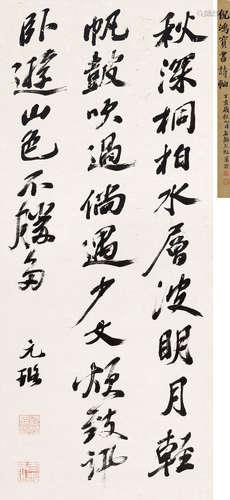 秋深桐柏水層波明月輕
帆鼓吹過倘遇少文煩致訊
卧遊山色不勝多
元璐
倪鴻寶書詩軸